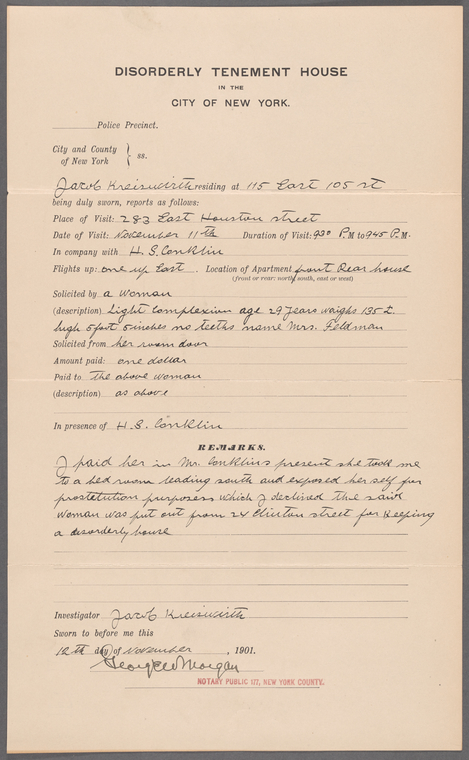 DISORDERLY TENEMENT HOUSE
IN THE
CITY OF NEW YORK.
Police Precinct.
City and County
of New York } ss.
Jacob Kreiswirth residing at 115 East 105 st
being duly sworn, reports as follows:
Place of Visit: 283 East Houston street
Date of Visit: November 11th Duration of Visit: 930 P.M to 945 P.M.
In company with H. S. Conklin
Flights up: one up East . Location of Apartment front Rear house
(front or rear: north, south, east or west)
Solicited by a Woman
(description) Light Complexion age 29 Years waighs 135 £.
high 5 foot 5 inches no teeths name Mrs. Feldman
Solicited from her room door
Amount paid: one dollar
Paid to The above woman
(description) as above
In presence of H. S. Conklin
REMARKS.
I paid her in Mr. Conklins present she took me
to a bed room leading south and exposed her self for
prostetution purposers which I declined The said
Woman was put out from 24 Clinton street for Keeping
a disorderly house
Investigator Jacob Kreiswirth
Sworn to before me this
12th day of November , 1901.
George W Morgan
NOTARY PUBLIC 177, NEW YORK COUNTY.